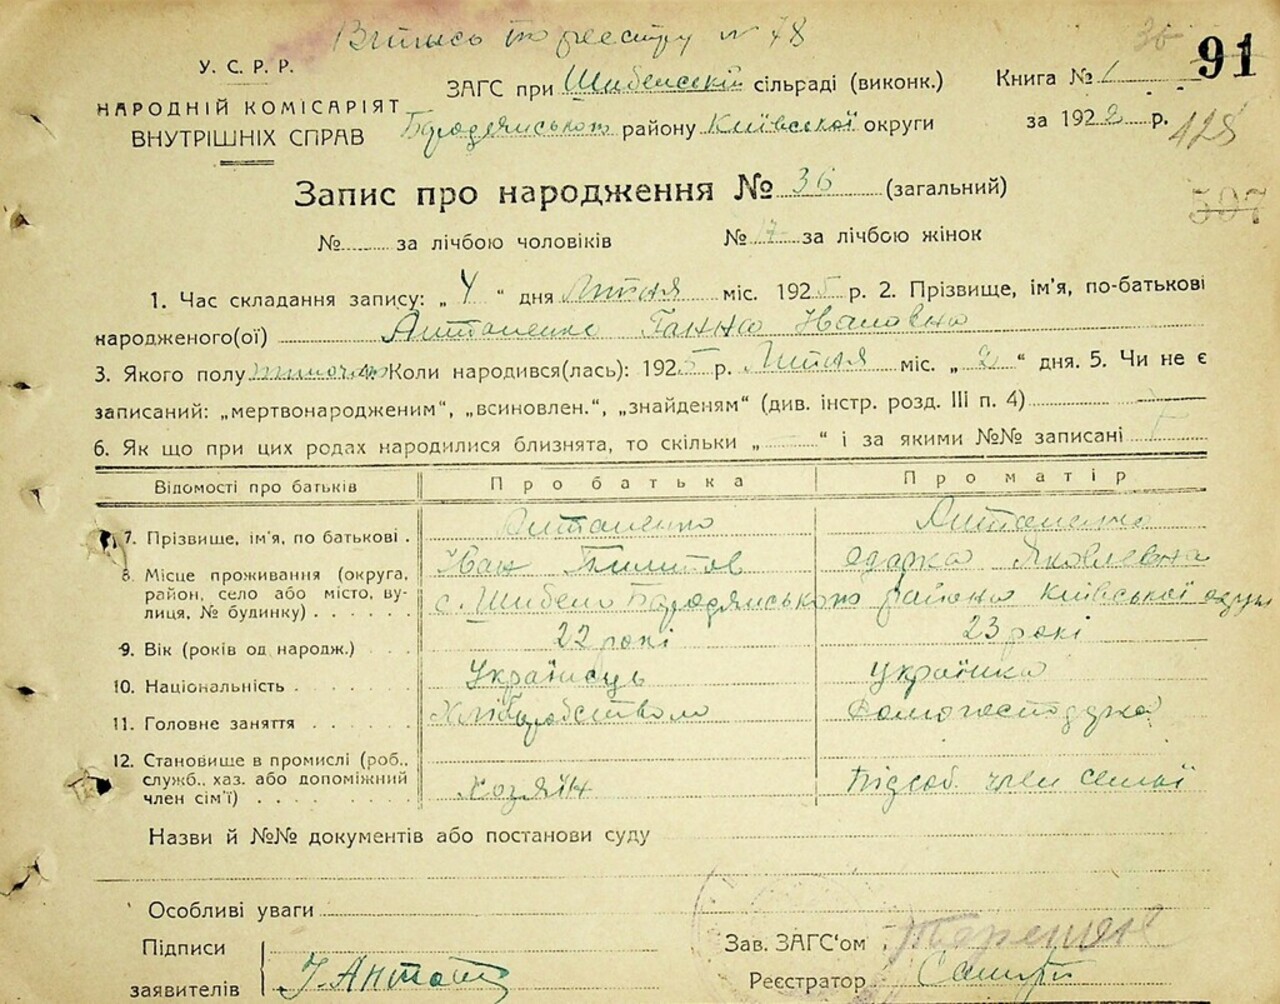 Витись по реєстру № 78
36 91
У. С. Р. Р.
НАРОДНІЙ КОМІСАРІЯТ
ВНУТРІШНІХ СПРАВ
ЗАГС при Шибенській сільраді (виконк.)
Бородянського району Київської округи
Книга № 1
за 1922 р.
128
507
Запис про народження № 36 (загальний)
№ за лічбою чоловіків № 17 за лічбою жінок
1. Час складання запису: „ 4 “ дня Липня міс. 1925 р. 2. Прізвище, ім'я, по-батькові
народженого(ої) Антоненко Ганна Івановна
3. Якого полу 4. Коли народився(лась): 1925 р. Липня міс. „ 2 “ дня. 5. Чи не є
записаний: „мертвонародженим“, „всиновлен.“, „знайденям“ (див. інстр. розд. III п. 4)
6. Як що при цих родах народилися близнята, то скільки „ — “ і за якими №№ записані
Відомості про батьків Про батька Про матір
7. Прізвище, ім'я, по батькові . Антоненко Антоненко
Іван Одарка Яковлевна
8. Місце проживання (округа,
район, село або місто, ву-
лиця, № будинку) . . . . . с. Шибено Бородянського района Київської округи
9. Вік (років од народж.) . . . 22 рокі 23 рокі
10. Національність . . . . . . Українець Українка
11. Головне заняття . . . . . . Хліборобством Домогосподарка
12. Становище в промислі (роб.,
служб., хаз. або допоміжний
член сім'ї) . . . . . . . . Хозяїн Підсоб. член семьї
Назви й №№ документів або постанови суду
Особливі уваги
Підписи
заявителів І. Антон
Зав. ЗАГС‘ом
Реєстратор